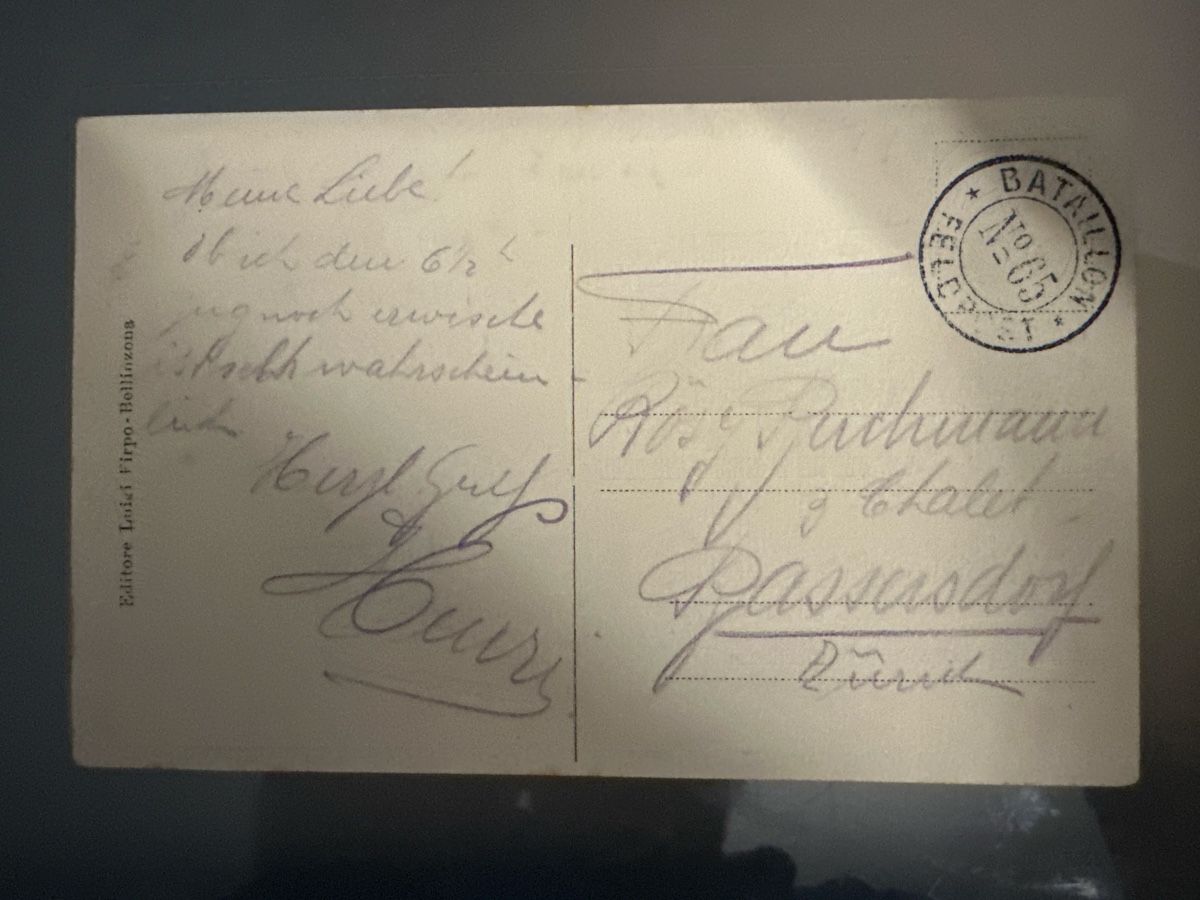 Meine Liebe!
Ob ich den 6½ h
zug noch erwische
ist sehr wahrschein-
lich
Herzl. Gruß
Editore Luigi Firpo - Bellinzona
BATAILLON
No 65
FELDPOST
Frau
Rösy
Chalet
Bassersdorf
Zürich